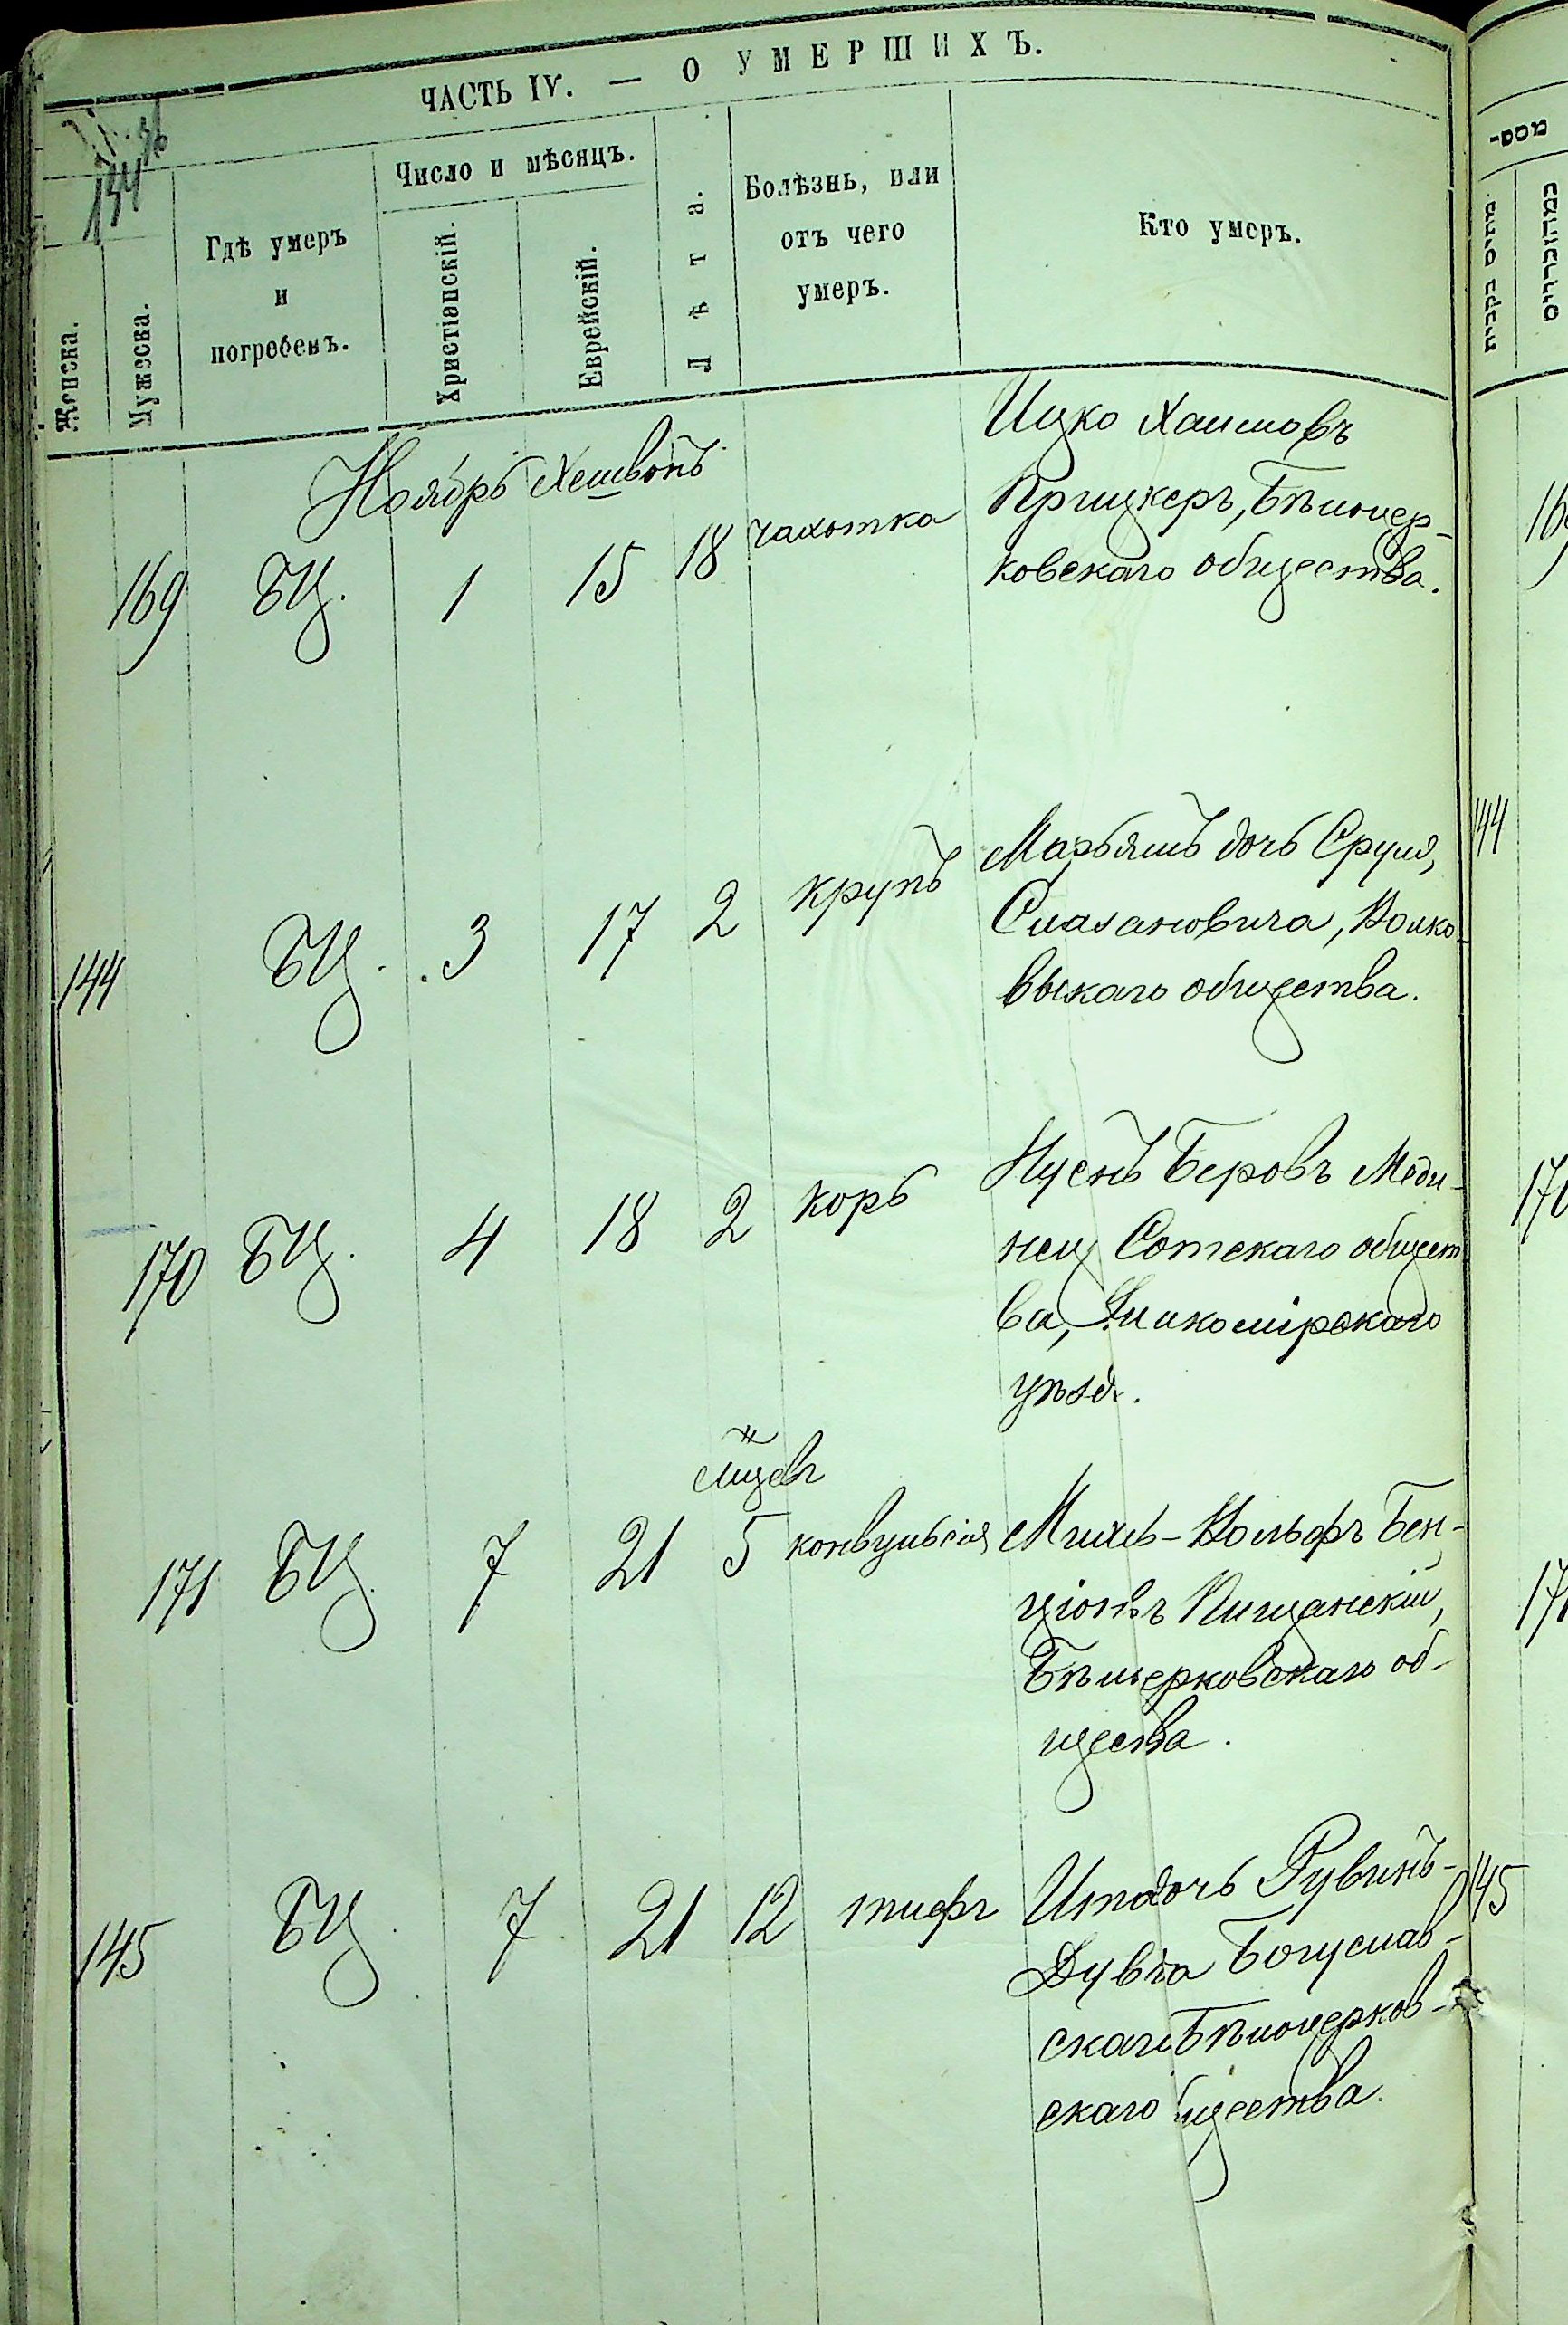 ЧАСТЬ IV. — О УМЕРШИХЪ.
134
Женска.
Мужеска.
Гдѣ умеръ
и
погребенъ.
Число и мѣсяцъ.
Христіанскій.
Еврейскій.
Лѣта.
Болѣзнь, или
отъ чего
умеръ.
Кто умеръ.
מתים בקבית
כמהזכרים
Ноябрь Хешвонъ
169 БЦ. 1 15 18 чахотка
Ицко Хаимовъ
Прицкеръ, Бѣлоцер-
ковскаго общества.
144 БЦ. 3 17 2 крупъ
Марьямъ дочь Сруля,
Смазановича, Волко
выскаго общества.
144
170 БЦ. 4 18 2 корь
Нусенъ Беровъ Меди-
нец Сотскаго общест
ва, Вилкомірскаго
уѣзд.
мцевъ
171 БЦ. 7 21 5 конвульсія
Михль-Вольфъ Бен-
ціонъ Пищанскій,
Бѣлцерковскаго об-
щества.
145 БЦ 7 21 12 тифъ
Ита дочь Рувинъ-
Дувида Богуслав-
скаго Бѣлоцерков-
скаго бщества.
145